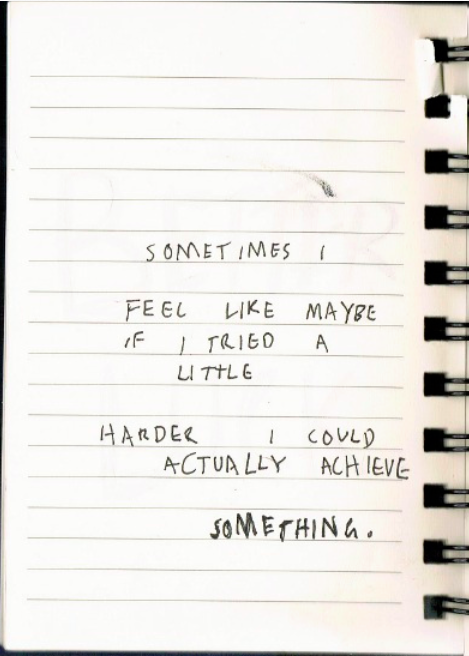 SOMETIMES I
FEEL LIKE MAYBE
IF I TRIED A
LITTLE
HARDER I COULD
ACTUALLY ACHIEVE
SOMETHING.